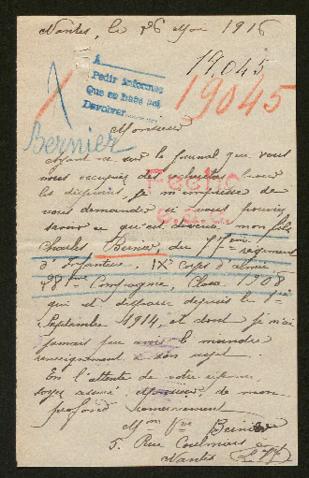 Nantes, le 26 Mai 1916
A
19,045
Pedir informes
Que se hace así
Devolver
19045
Bernier
Monsieur
Ayant vu sur le journal que vous
vous occupiez des recherches pour
les disparus, je m'empresse de
vous demander si vous pouviez
savoir ce qu'est devenu mon fils
Charles Bernier, du 77ème régiment
d'Infanterie, IXe corps d'armée
28ème Compagnie, Classe 1908
qui est disparu depuis le
Septembre 1914, et dont je n'ai
jamais pu avoir le moindre
renseignement à son sujet.
En l'attente de votre réponse,
soyez assuré, Monsieur, de mon
profond remerciement
Mme Vve Bernier
5, Rue Coulmiers
Nantes
Fecho